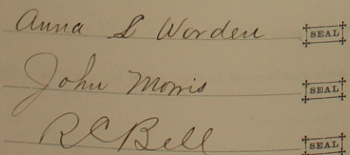 Anna L Worden SEAL
John Morris SEAL
R C Bell SEAL